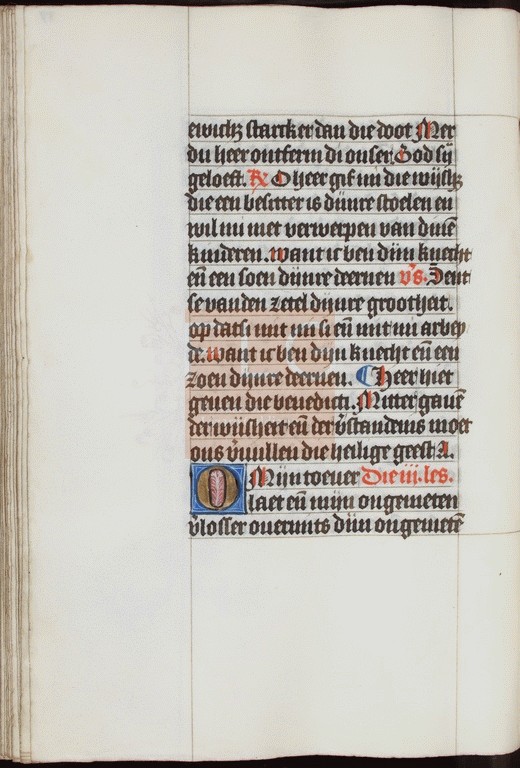 ewich₃ starcker dan die doot Mer
du heer ontferm di onser God sij
geloeft. R O heer gif mi die wijsh₃
die een besitter is dijnre stoelen en
wil mi niet verwerpen van dinē
kinderen. want ic ben dijn knecht
eñ een soen dijnre deernen v̄s. Sent
se van den zetel dijnre grootheit.
op dat si mit mi si eñ mit mi arbey
de. want ic ben dijn knecht eñ een
zoen dijnre deernen. Heer hiet
geuen die benedicti. Mitter gauē
der wijsheit eñ der v̄standenis moet
ons v̄uullen die heilige geest A.
O Mijn toeuer Die iij. les.
laet eñ mijn ongemeten
v̄losser ouermits dijn ongemetē